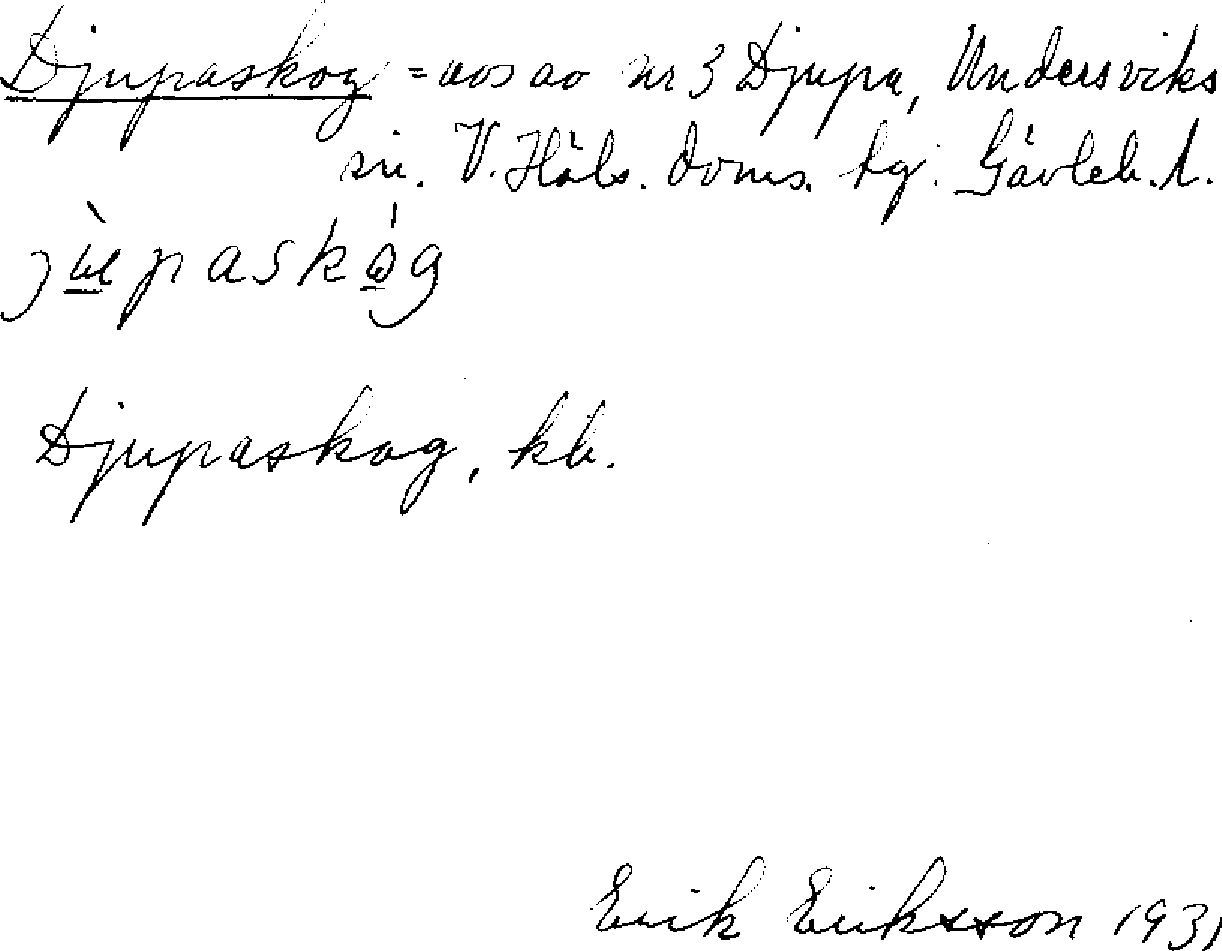 Djupaskog = avs av nr 3 Djupa, Undersviks
sn. V. Häls. doms. tg. Gävleb. l.
jùpaskóg
Djupaskog, kb.
Erik Eriksson 1931